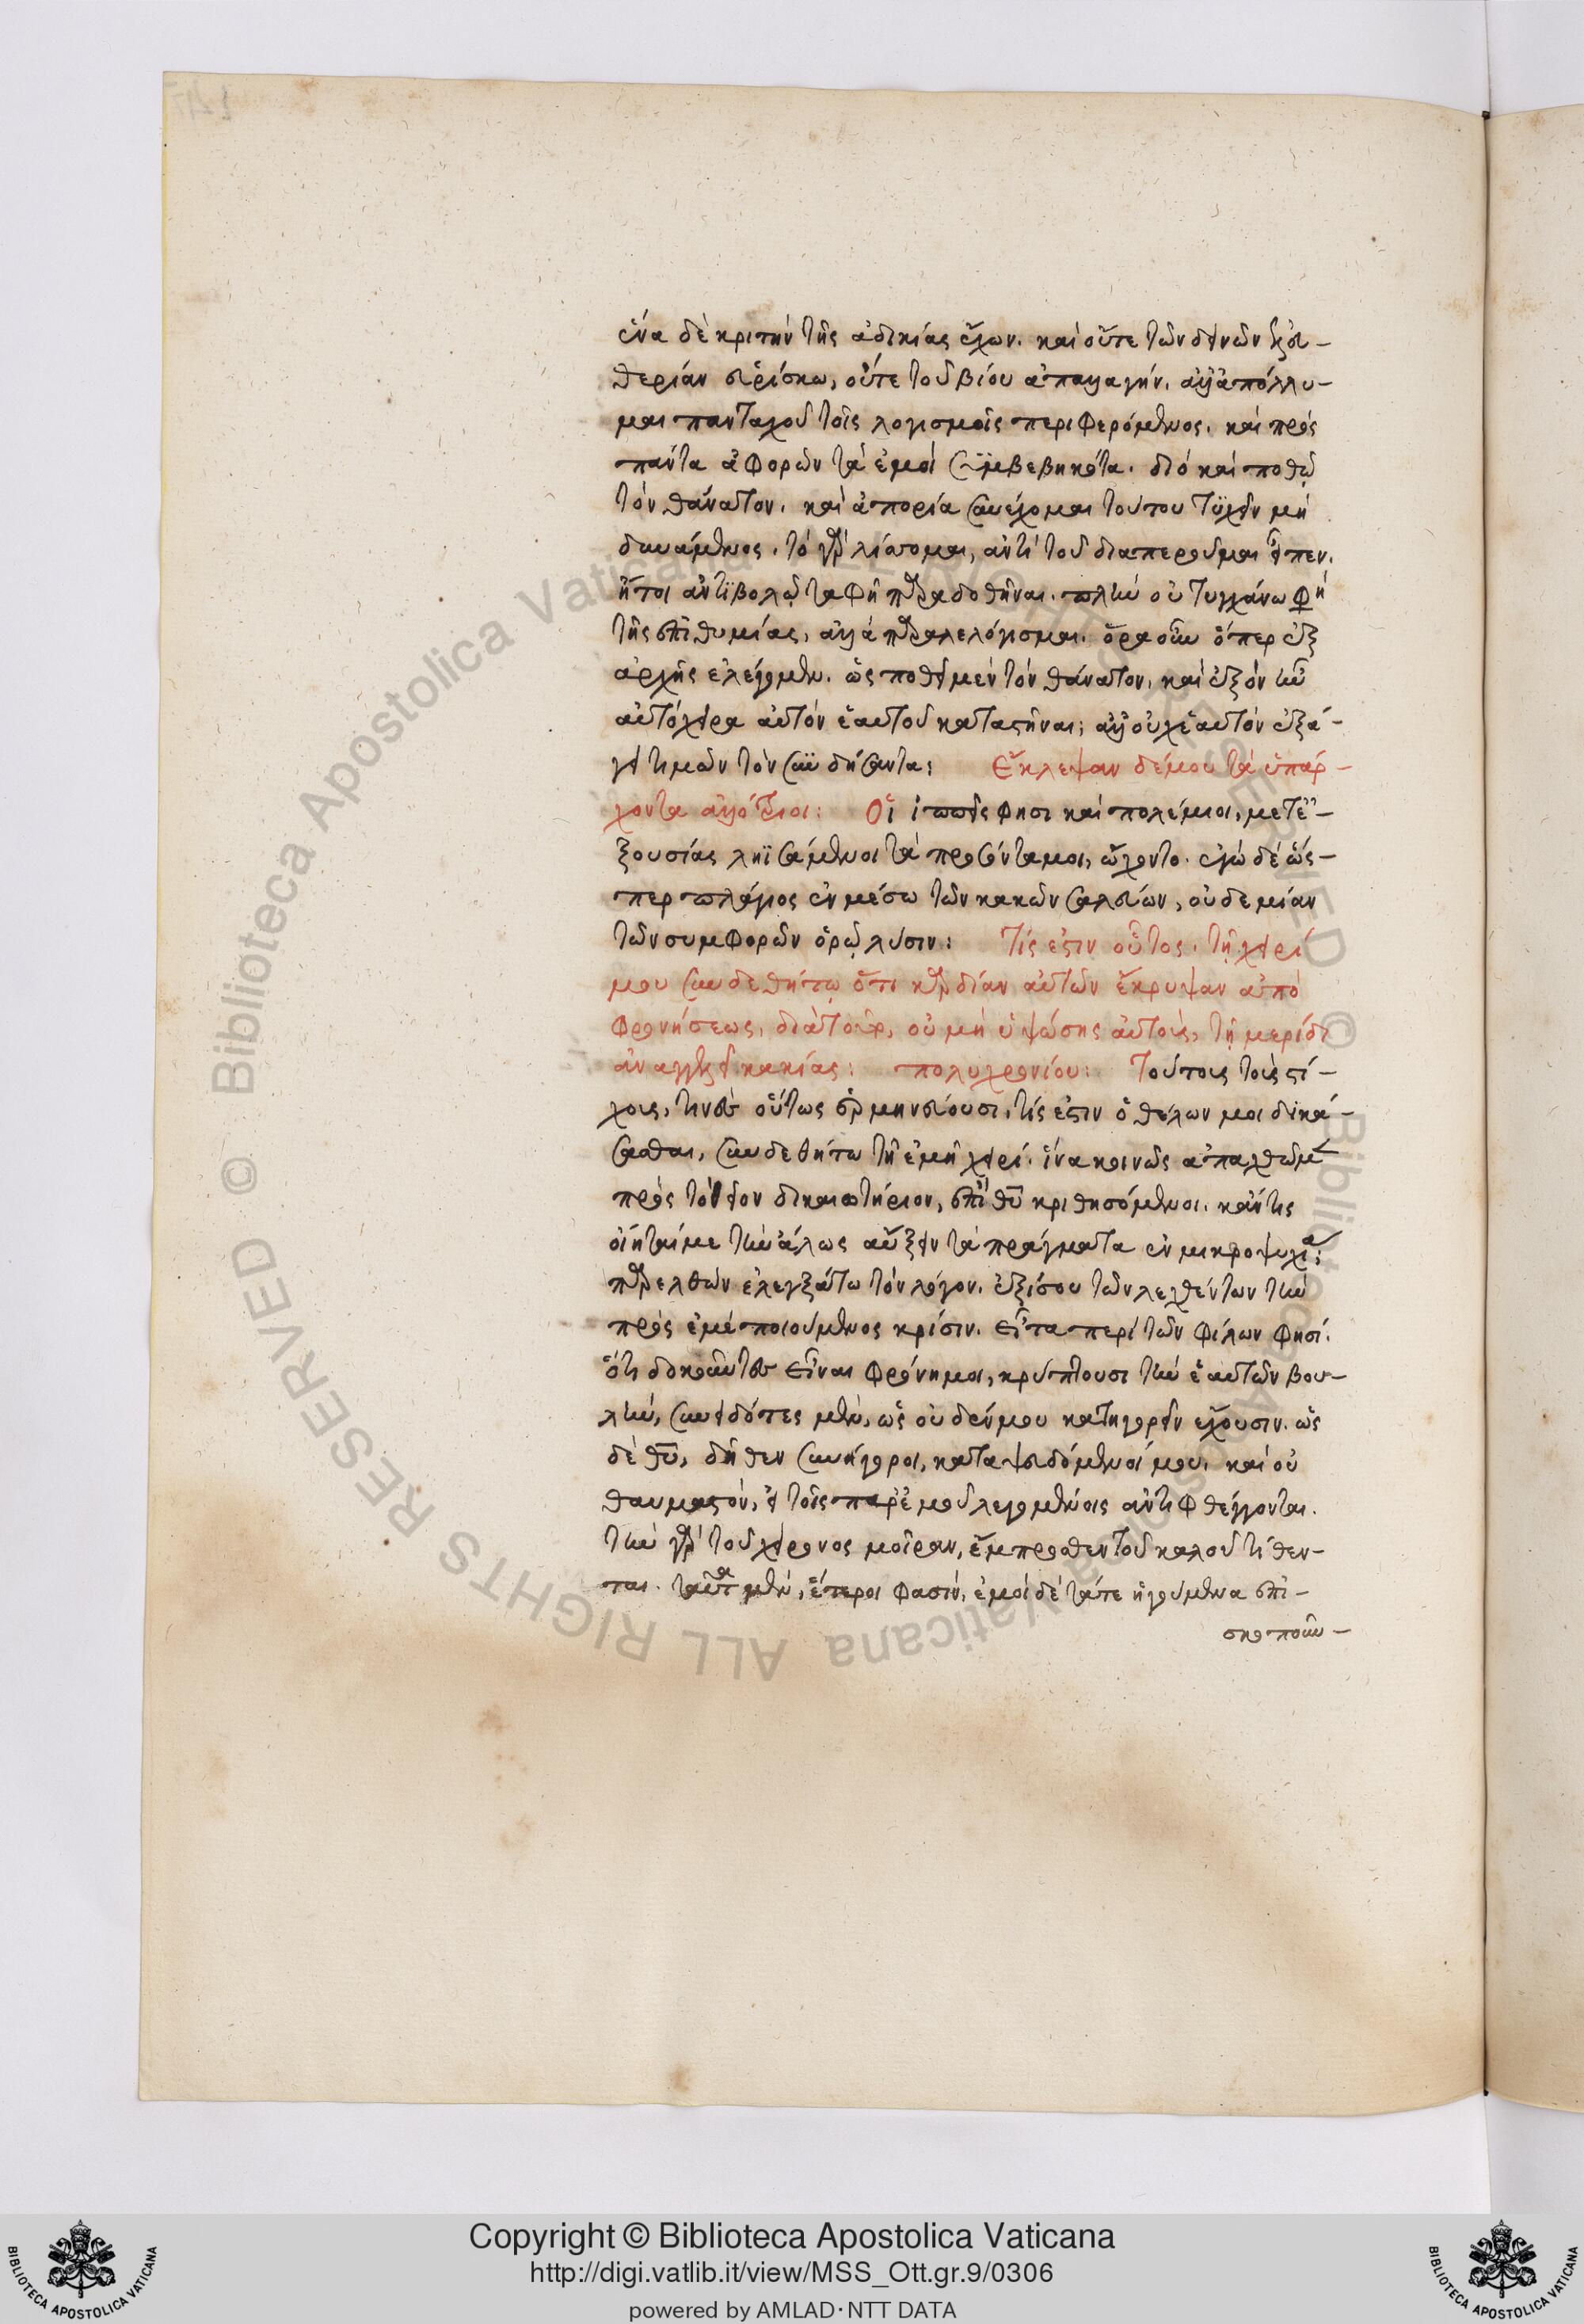 ἕνα δὲ κριτὴν τῆς ἀδικίας ἔχων. καὶ οὔτε τῶν δεινῶν ἐλευ-
θερίαν εὑρίσκω, οὔτε τοῦ βίου ἀπαλλαγήν. ἀλλ' ἀπόλλυ-
μαι πανταχοῦ τοῖς λογισμοῖς περιφερόμενος. καὶ πρὸς
πάντα ἀφορῶν τὰ ἐμοὶ συμβεβηκότα. διὸ καὶ ποθῶ
τὸν θάνατον. καὶ ἀπορία συνέχομαι τούτου τυχεῖν μὴ
δυνάμενος. τὸ γὰρ λίσσομαι, ἀντὶ τοῦ διαπεροῦμαι εἶπεν.
ἤτοι ἀντιβολῶ ταφῆ παραδοθῆναι. πλὴν οὐ τυγχάνω φη
τῆς ἐπιθυμίας, ἀλλὰ παραλελόγισμαι. ὅρα οὖν ὅπερ ἐξ
ἀρχῆς ἐλέγομεν. ὡς ποθεῖ μὲν τὸν θάνατον, καὶ ἐξὸν ἦν
αὐτόχειρα αὐτὸν ἑαυτοῦ καταστῆναι; ἀλλ' οὐχ ἑαυτὸν ἐξά-
γει τιμῶν τὸν συνδήσαντα: Ἔκλεψαν δέ μου τὰ ὑπάρ-
χοντα ἀλλότριοι: Οἱ ἱππεῖς φησι καὶ πολέμιοι, μετ' ἐ-
ξουσίας ληϊσάμενοι τὰ προσόντα μοι, ᾤχοντο. ἐγὼ δὲ ὥς-
περ πλάγιος ἐν μέσω τῶν κακῶν σαλεύων, οὐδεμίαν
τῶν συμφορῶν ὁρῶ λύσιν: Τίς ἐστιν οὗτος. τῇ χειρί
μου συνδεθήτω ὅτι καρδίαν αὐτῶν ἔκρυψαν ἀπὸ
φρονήσεως, διὰ τοῦτο, οὐ μὴ ὑψώσης αὐτούς, τῇ μερίδι
ἀναγγελεῖ κακίας: πολυχρονίου: Τούτους τοὺς στί-
χους, τινὲς οὕτως ἑρμηνεύουσι, τίς ἐστιν ὁ θέλων μοι δικά-
σασθαι, συνδεθήτω τῆ ἐμῆ χειρί. ἵνα κοινῶς ἀπαχθῶμεν
πρὸς τὸ θεῖον δικαιωτήριον, ἐπὶ θῦ κριθησόμενοι. κἄν τις
οἴηταί με τηνάλως αὔξειν τὰ πράγματα ἐν μικροψυχία;
παρελθὼν ἐλεγξάτω τὸν λόγον. ἐξίσου τῶν λεχθέντων τὴν
πρὸς ἐμὲ ποιούμενος κρίσιν. εἶτα περὶ τῶν φίλων φησί.
ὅτι δοκοῦντες εἶναι φρόνημοι, κρύπτουσι τὴν ἑαυτῶν βου-
λήν, συνειδότες μὲν, ὡς οὐδέν μου κατηγορεῖν ἔχουσιν. ὡς
δὲ θῦ, δῆθεν συνήγοροι, καταψευδόμενοί μου. καὶ οὐ
θαυμαστόν, εἰ τοῖς παρ' ἐμοῦ λεγομένοις ἀντιφθέγγονται.
τὴν γὰρ τοῦ χείρονος μοῖραν, ἔμπροσθεν τοῦ καλοῦ τίθεν-
ται. ταῦτα μὲν, ἕτεροι φασίν, ἐμοὶ δὲ τάτε ἡγούμενα ἐπι-
σκοποῦν-
Copyright © Biblioteca Apostolica Vaticana
http://digi.vatlib.it/view/MSS_Ott.gr.9/0306
powered by AMLAD·NTT DATA